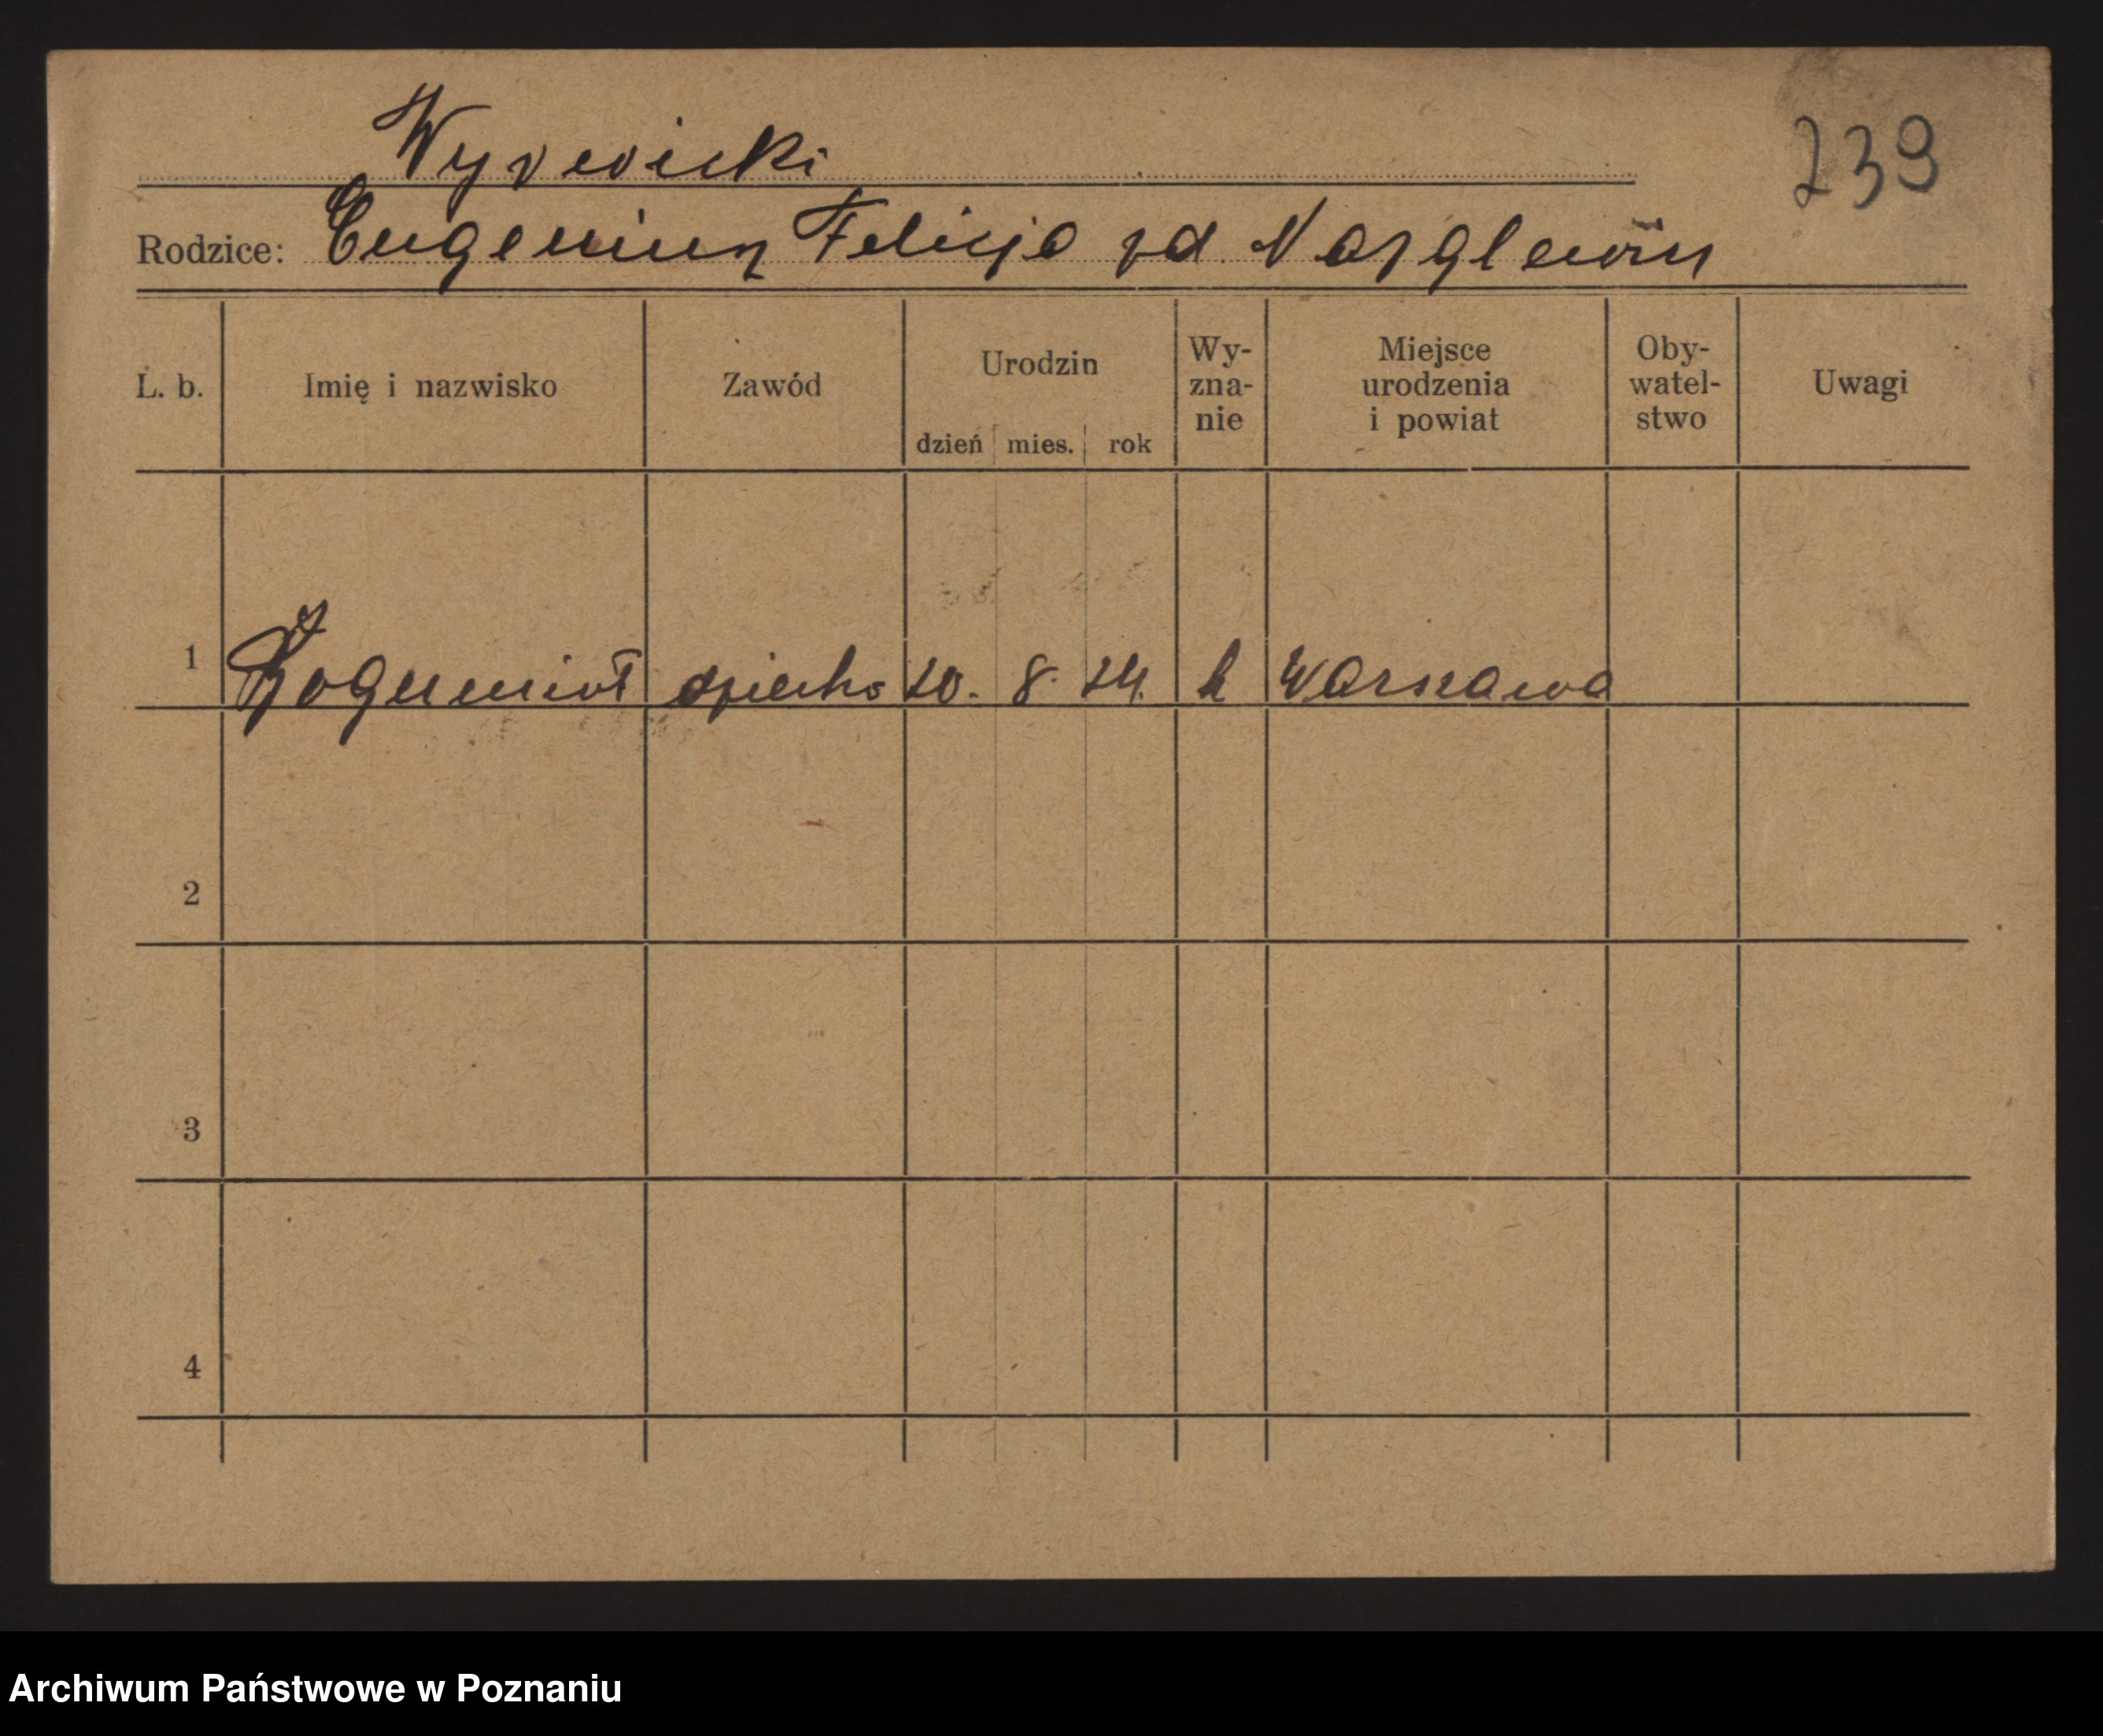 Wyrwicki
239
Rodzice: Eugeniusz Felicja zd.
L. b. Imię i nazwisko Zawód Urodzin dzień mies. rok Wy-zna-nie Miejsce urodzenia i powiat Oby-watel-stwo Uwagi
1 Zogumiał dziecko 20. 8. 24. k Warszawa
2
3
4
Archiwum Państwowe w Poznaniu